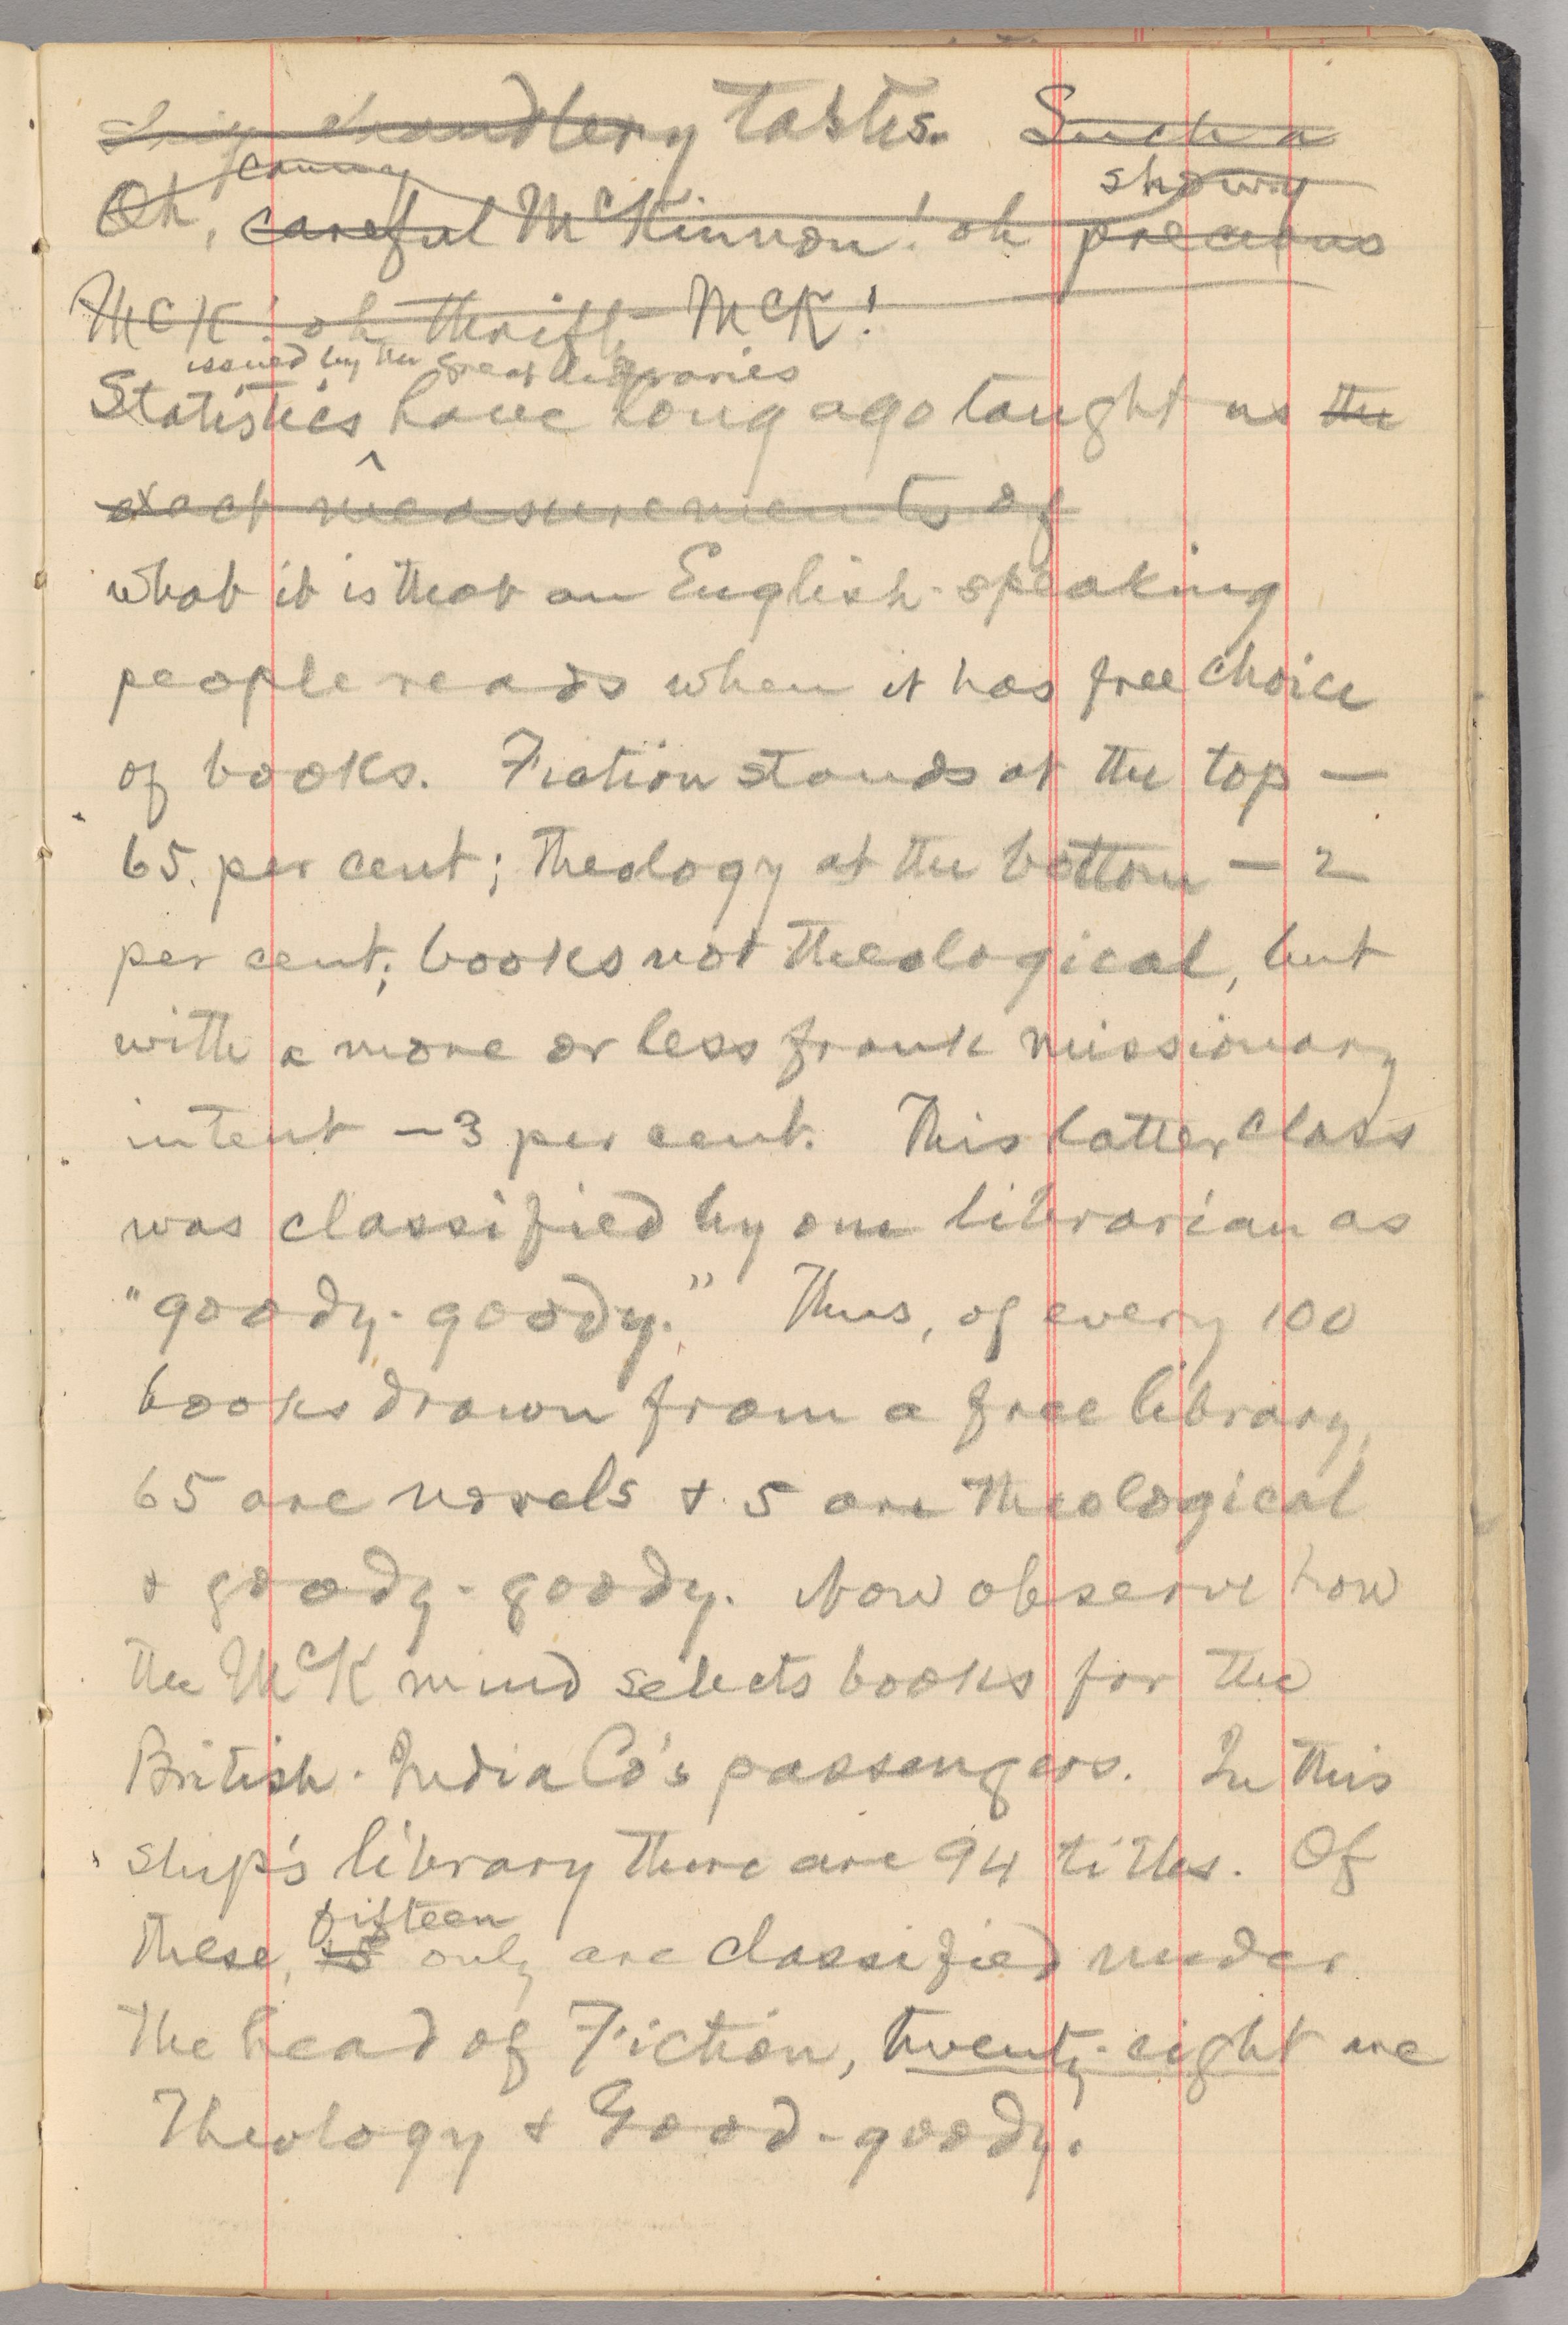 Ship-chandlery tastes. Such a
canny showy
Oh, careful McKinnon! oh precious
McK! oh thrifty McK!
issued by the great libraries
Statistics have long ago taught us the
exact measurements of
what it is that an English-speaking
people reads when it has free choice
of books. Fiction stands at the top —
65 per cent; Theology at the bottom — 2
per cent; books not theological, but
with a more or less frank missionary
intent — 3 per cent. This latter class
was classified by one librarian as
"goody-goody." Thus, of every 100
books drawn from a free library,
65 are novels & 5 are theological
& goody-goody. Now observe how
the McK mind selects books for the
British-India Co's passengers. In this
ship's library there are 94 titles. Of
fifteen
these, 15 only are classified under
the head of Fiction, twenty-eight are
Theology & Good-goody.